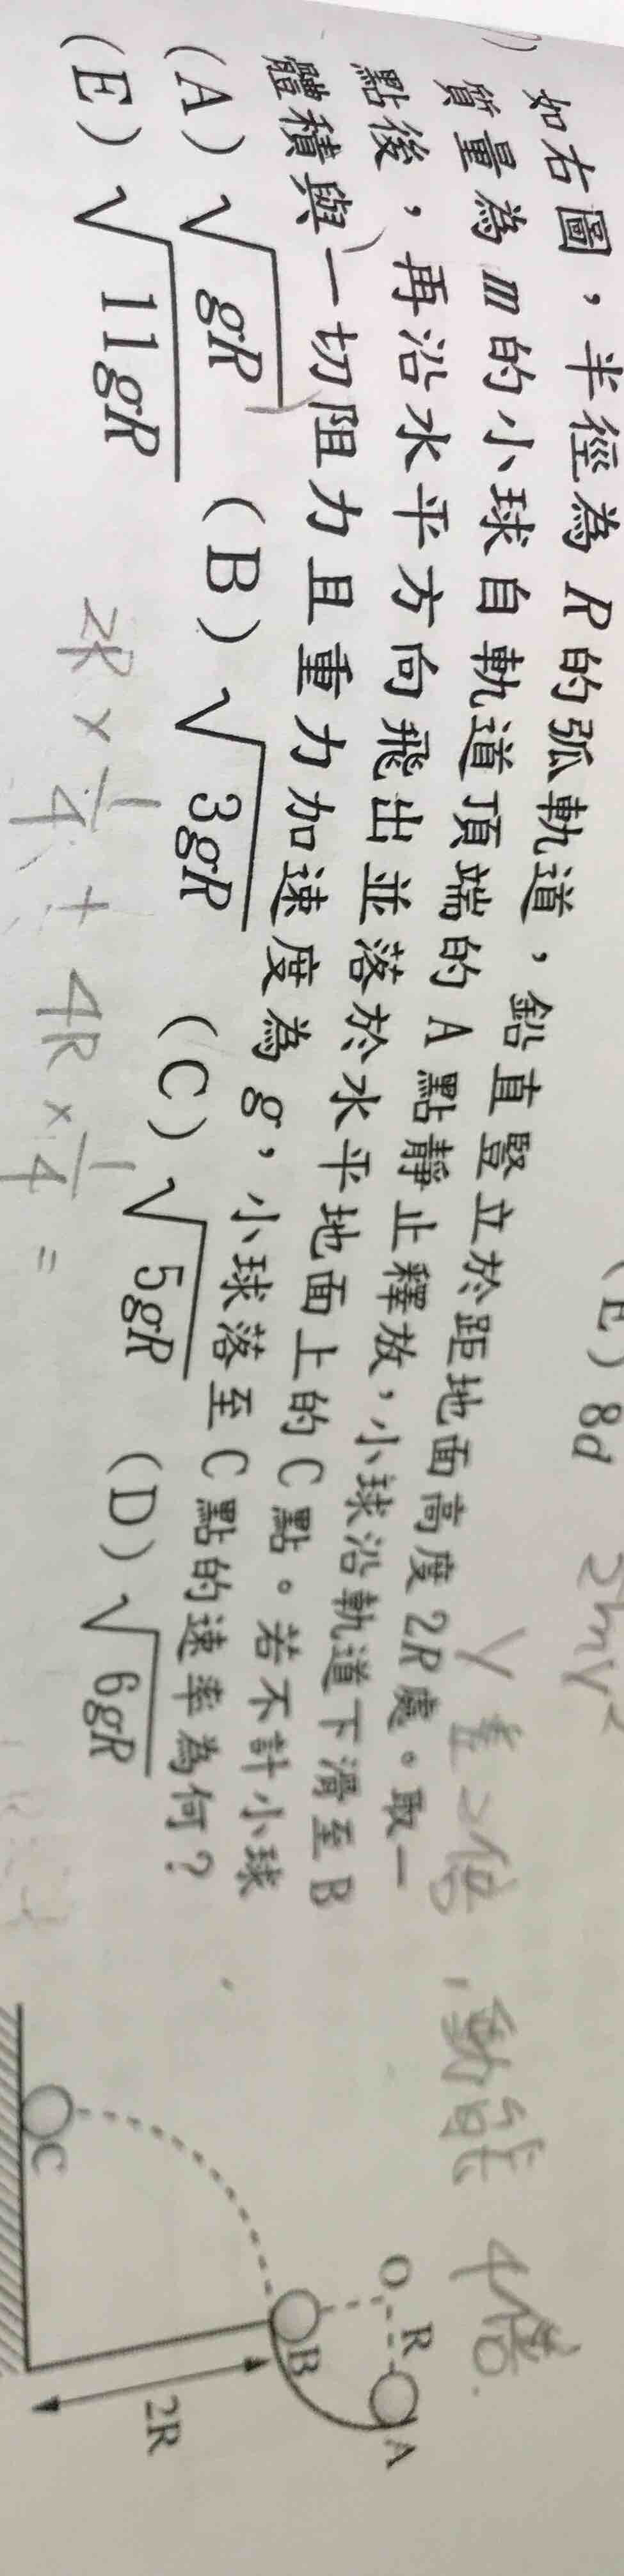 (E) 8d
2mv²
V差2倍，動能4倍.
如右圖，半徑為 R 的弧軌道，鉛直豎立於距地面高度 2R 處。取一
質量為 m 的小球自軌道頂端的 A 點靜止釋放，小球沿軌道下滑至 B
點後，再沿水平方向飛出並落於水平地面上的 C 點。若不計小球
體積與一切阻力且重力加速度為 g，小球落至 C 點的速率為何？
(A) √gR (B) √3gR (C) √5gR (D) √6gR
(E) √11gR
2R × 1/4 + 4R × 1/4 =
O R A
B
2R
C